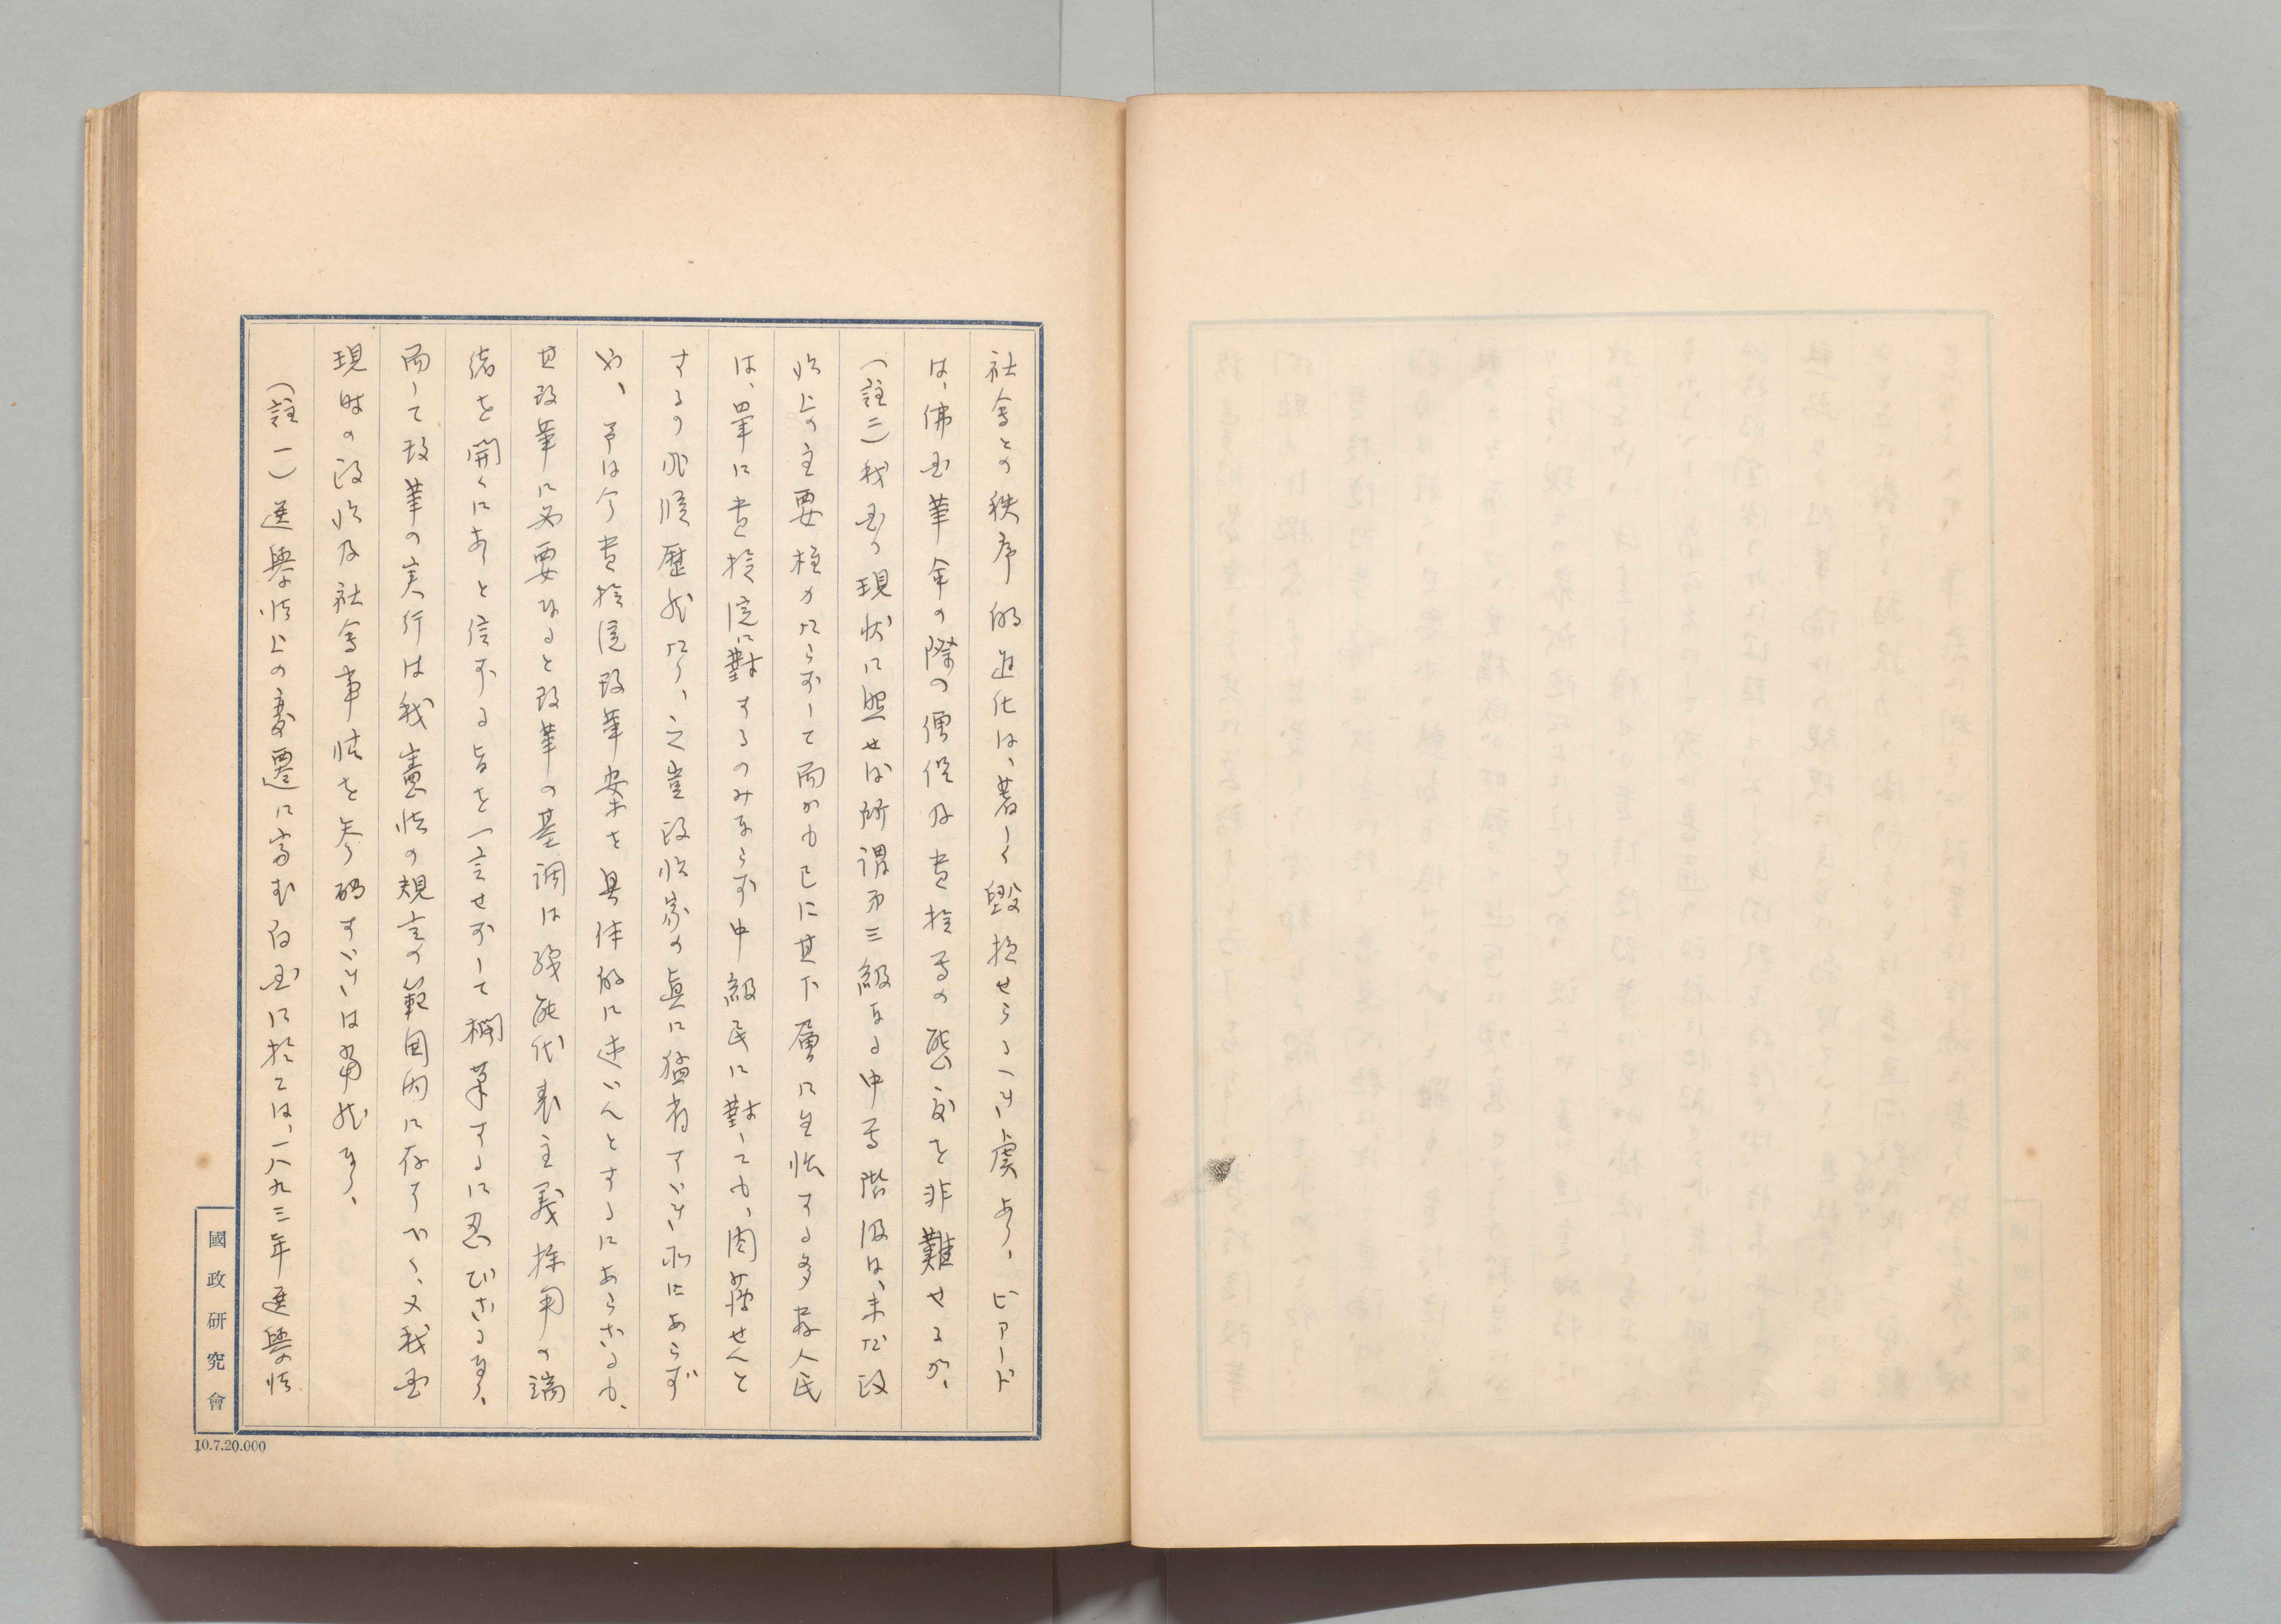 社会との秩序的進化は、著しく毀損せらるべき虞あり、ビアード
は、佛国革命の際の僧侶及貴族等の態度を非難せるが、
(註二)我国の現状に照せば所謂第三級なる中等階級は、未だ政
治上の主要柱石たらずして而かも已に其下層に生活する多数人民
は、単に貴族院に対するのみならず中級民に対しても、肉薄せんと
するの形勢歴然たり、之豈政治家の真に猛省すべき所にあらず
や、予は今貴族院改革案を具体的に述べんとするにあらざるも、
其改革に必要なると改革の基調は職能代表主義採用の端
緒を開くにありと信ずる旨を一言せずして擱筆するに忍びざるなり、
而して改革の実行は我憲法の規定の範囲内に存すべく、又我国
現時の政治及社会事情を参酌すべきは勿論なり、
(註一)選挙法上の変遷に富む白国に於ては、一八九三年選挙法
國政研究會
10.7.20.000